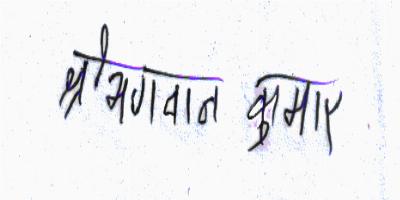 श्रीभगवान कुमार